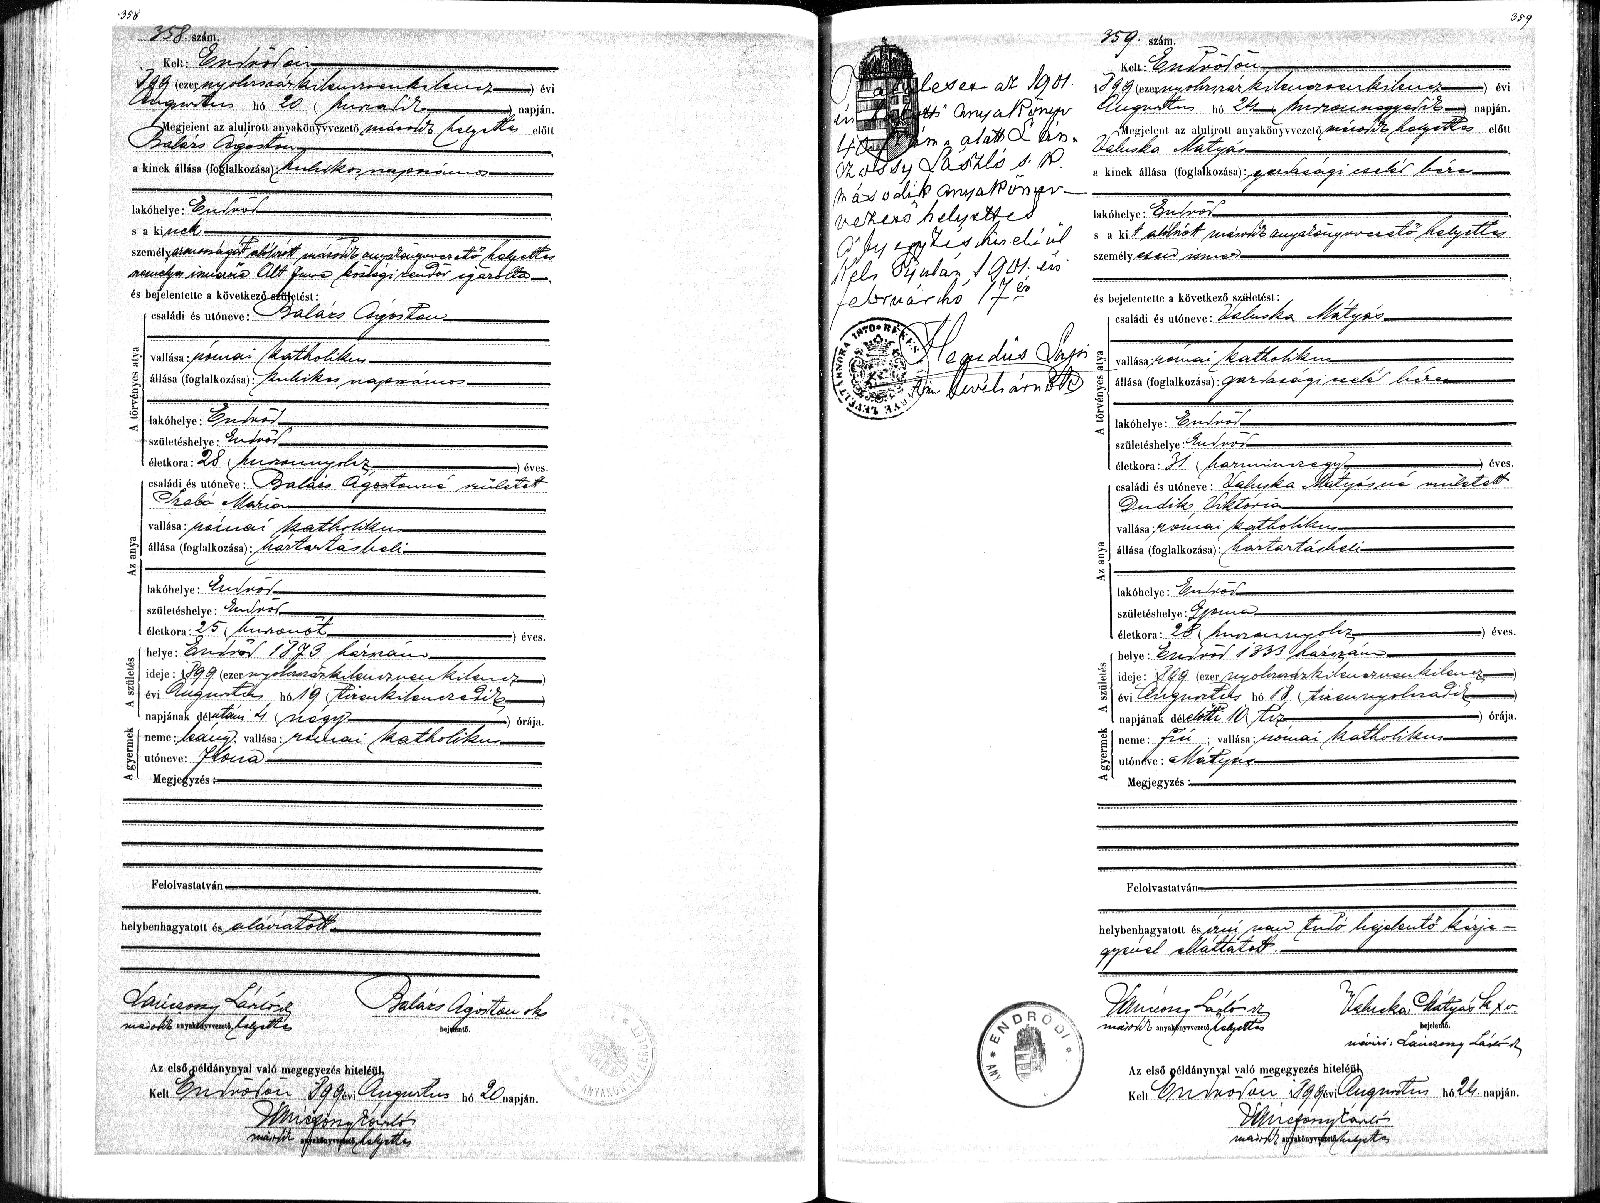 358
358. szám.
Kelt: Endrődön
899 (ezer nyolcszázkilenczvenkilencz) évi
Augusztus hó 20 (huszadik) napján.
Megjelent az alulirott anyakönyvvezető második helyettes előtt
Balázs Ágoston
a kinek állása (foglalkozása): kubikos napszámos
lakóhelye: Endrőd
s a kinek
személyazonosságát alólirott második anyakönyvvezető helyettes
igazolta
és bejelentette a következő születést:
A törvényes atya
családi és utóneve: Balázs Ágoston
vallása: római katholikus
állása (foglalkozása): kubikos napszámos
lakóhelye: Endrőd
születéshelye: Endrőd
életkora: 28 (huszonnyolcz) éves.
Az anya
családi és utóneve: Balázs Ágostonné született
Szabó Mária
vallása: római katholikus
állása (foglalkozása): háztartásbeli
lakóhelye: Endrőd
születéshelye: Endrőd
életkora: 25 (huszonöt) éves.
A születés
helye: Endrőd 1873 házszám
ideje: 1899 (ezer nyolcszázkilenczvenkilencz)
évi Augusztus hó 19 (tizenkilenczedik)
napjának délután 4 (négy) órája.
A gyermek
neme: leány; vallása: római katholikus
utóneve: Ilona
Megjegyzés:
Felolvastatván
helybenhagyatott és aláiratott.
Lánczossy László sk
második anyakönyvvezető helyettes
Balázs Ágoston sk
bejelentő.
Az első példánynyal való megegyezés hiteléül,
Kelt Endrődön 899 évi Augusztus hó 20 napján.
Lánczossy László
második anyakönyvvezető helyettes
359
az 1901.
anyakönyv
alatt Lán-
czossy László s. k.
második anyakönyv-
vezető helyettes
hiteléül
Kelt Gyulán 1901. évi
február hó 17 én
Hegedüs
BÉKÉS
1870
359. szám.
Kelt: Endrődön
1899 (ezer nyolcszázkilenczvenkilencz) évi
Augusztus hó 24 (huszonnegyedik) napján.
Megjelent az alulirott anyakönyvvezető második helyettes előtt
Valuska Mátyás
a kinek állása (foglalkozása): gazdasági cseléd béres
lakóhelye: Endrőd
s a kit alólirott második anyakönyvvezető helyettes
személyesen ismer
és bejelentette a következő születést:
A törvényes atya
családi és utóneve: Valuska Mátyás
vallása: római katholikus
állása (foglalkozása): gazdasági cseléd béres
lakóhelye: Endrőd
születéshelye: Endrőd
életkora: 31 (harminczegy) éves.
Az anya
családi és utóneve: Valuska Mátyásné született
Dudik Viktória
vallása: római katholikus
állása (foglalkozása): háztartásbeli
lakóhelye: Endrőd
születéshelye: Gyoma
életkora: 28 (huszonnyolcz) éves.
A születés
helye: Endrőd házszám
ideje: 1899 (ezer nyolcszázkilenczvenkilencz)
évi Augusztus hó 18 (tizennyolczadik)
napjának délelőtti 10 (tiz) órája.
A gyermek
neme: fiú; vallása: római katholikus
utóneve: Mátyás
Megjegyzés:
Felolvastatván
helybenhagyatott és irni nem tudó bejelentő kézje-
gyével elláttatott
Lánczossy László sk
második anyakönyvvezető helyettes
Valuska Mátyás k x v.
bejelentő.
névíró: Lánczossy László sk
ENDRŐDI
Az első példánynyal való megegyezés hiteléül,
Kelt Endrődön 1899 évi Augusztus hó 24 napján.
Lánczossy László
második anyakönyvvezető helyettes